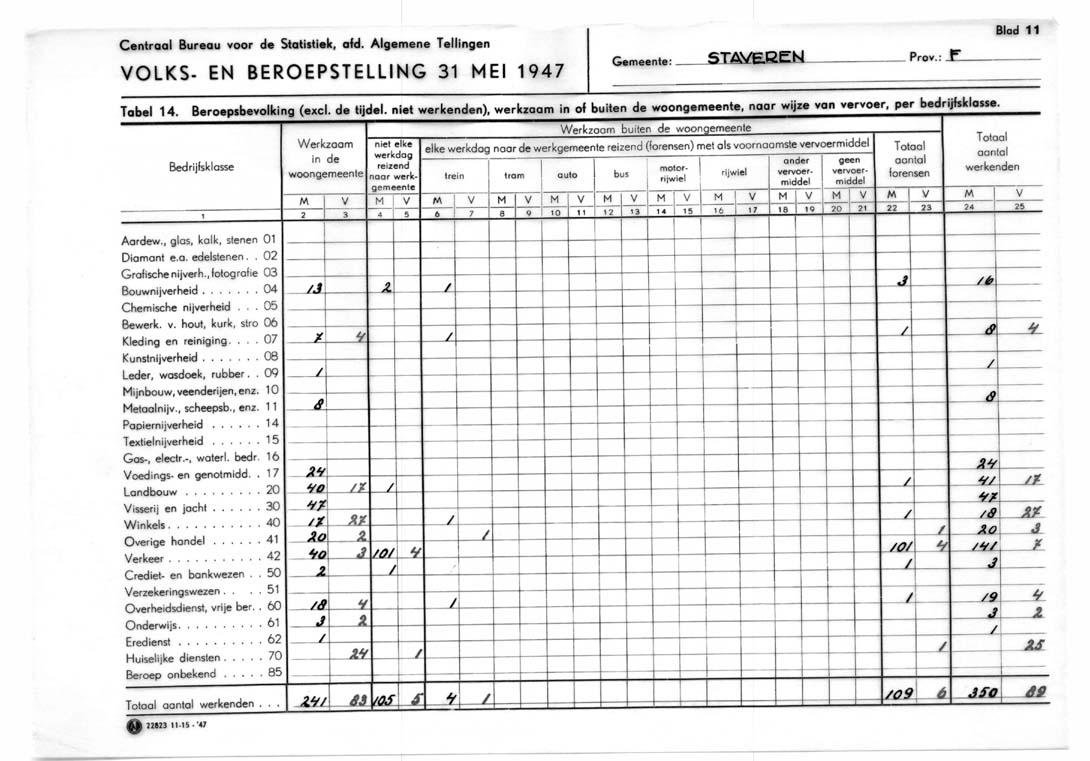 Blad 11
Centraal Bureau voor de Statistiek, afd. Algemene Tellingen
VOLKS- EN BEROEPSTELLING 31 MEI 1947
Gemeente: STAVEREN Prov.: F
Tabel 14. Beroepsbevolking (excl. de tijdel. niet werkenden), werkzaam in of buiten de woongemeente, naar wijze van vervoer, per bedrijfsklasse.
Bedrijfsklasse
Werkzaam
in de
woongemeente
Werkzaam buiten de woongemeente
niet elke
werkdag
reizend
naar werk-
gemeente
elke werkdag naar de werkgemeente reizend (forensen) met als voornaamste vervoermiddel
trein tram auto bus
motor-
rijwiel
rijwiel
ander
vervoer-
middel
geen
vervoer-
middel
Totaal
aantal
forensen
Totaal
aantal
werkenden
M V M V M V M V M V M V M V M V M V M V M V M V
1 2 3 4 5 6 7 8 9 10 11 12 13 14 15 16 17 18 19 20 21 22 23 24 25
Aardew., glas, kalk, stenen 01
Diamant e.a. edelstenen . . 02
Grafische nijverh., fotografie 03
Bouwnijverheid . . . . . . . 04 13 2 1 3 16
Chemische nijverheid . . . 05
Bewerk. v. hout, kurk, stro 06
Kleding en reiniging. . . . 07 7 4 1 1 8 4
Kunstnijverheid . . . . . . . 08
Leder, wasdoek, rubber. . 09 1 1
Mijnbouw, veenderijen, enz. 10
Metaalnijv., scheepsb., enz. 11 8 8
Papiernijverheid . . . . . . 14
Textielnijverheid . . . . . . 15
Gas-, electr.-, waterl. bedr. 16
Voedings- en genotmidd. . 17 24 24
Landbouw . . . . . . . . . 20 40 17 1 1 41 17
Visserij en jacht . . . . . . 30 47 47
Winkels . . . . . . . . . . . 40 17 27 1 1 18 27
Overige handel . . . . . . 41 20 2 1 1 20 3
Verkeer . . . . . . . . . . . 42 40 3 101 4 101 4 141 7
Crediet- en bankwezen . . 50 2 1 1 3
Verzekeringswezen . . . . 51
Overheidsdienst, vrije ber. . 60 18 4 1 1 19 4
Onderwijs. . . . . . . . . . 61 3 2 3 2
Eredienst . . . . . . . . . . 62 1 1
Huiselijke diensten . . . . . 70 24 1 1 25
Beroep onbekend . . . . . 85
Totaal aantal werkenden . . . 241 83 105 5 4 1 109 6 350 89
22823 11-15 - '47